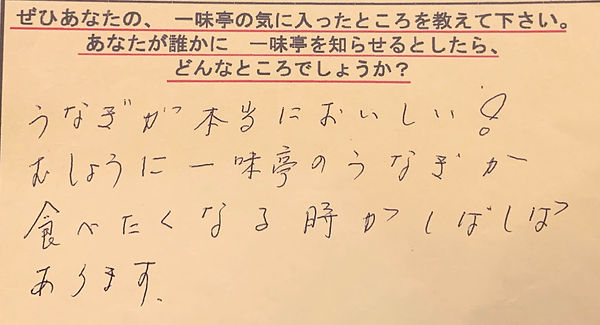 ぜひあなたの、 一味亭の気に入ったところを教えて下さい。
あなたが誰かに 一味亭を知らせるとしたら、
どんなところでしょうか？
うなぎが本当においしい！
むしょうに一味亭のうなぎが
食べたくなる時がしばしば
あります。